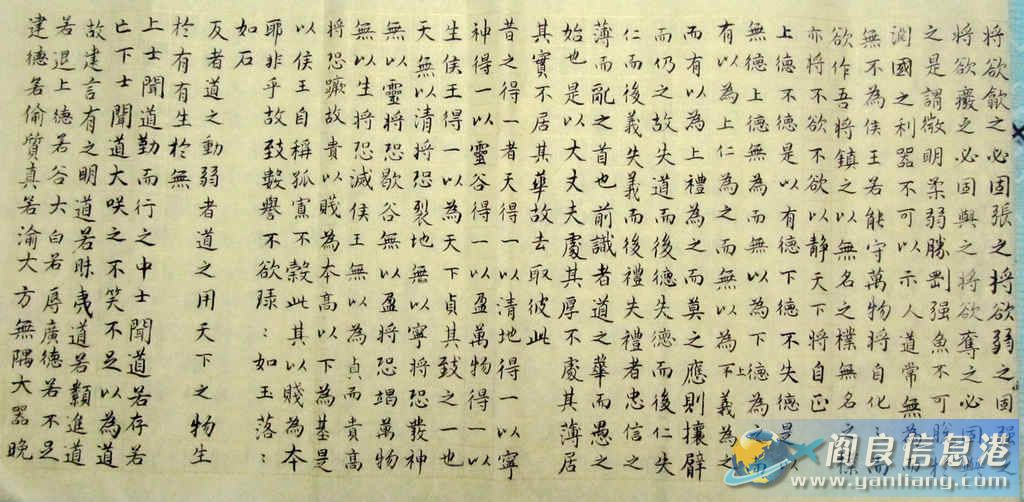 將欲歙之必固張之將欲弱之必固強之
將欲癈之必固興之將欲奪之必固與
之是謂微明柔弱勝剛强魚不可脫於
渊國之利器不可以示人道常無為而
無不為侯王若能守萬物將自化:而
欲作吾將鎮之以無名之樸無名之樸
亦將不欲不欲以静天下將自正
上德不德是以有德下德不失德是以
無德上德無為而無以為下德為之而
有以為上仁為之而無以為下上義為之
而有以為上禮為之而莫之應則攘臂
而仍之故失道而後德失德而後仁失
仁而後義失義而後禮失禮者忠信之
薄而亂之首也前識者道之華而愚之
始也是以大丈夫處其厚不處其薄居
其實不居其華故去取彼此
昔之得一者天得一以清地得一以寧
神得一以靈谷得一以盈萬物得一以
生侯王得一以為天下貞其致之一也
天無以清將恐裂地無以寧將恐發神
無以靈將恐歇谷無以盈將恐竭萬物
無以生將恐滅侯王無以為貞而貴高
將恐蹶故貴以賤為本高以下為基是
以侯王自稱孤寡不穀此其以賤為本
耶非乎故致數譽不欲琭:如玉落:
如石
反者道之動弱者道之用天下之物生
於有有生於無
上士聞道勤而行之中士聞道若存若
亡下士聞道大咲之不笑不足以為道
故建言有之明道若昧夷道若纇進道
若退上德若谷大白若辱廣德若不足
建德若偷質真若渝大方無隅大器晚
阎良信息港
www.yanliang.cn